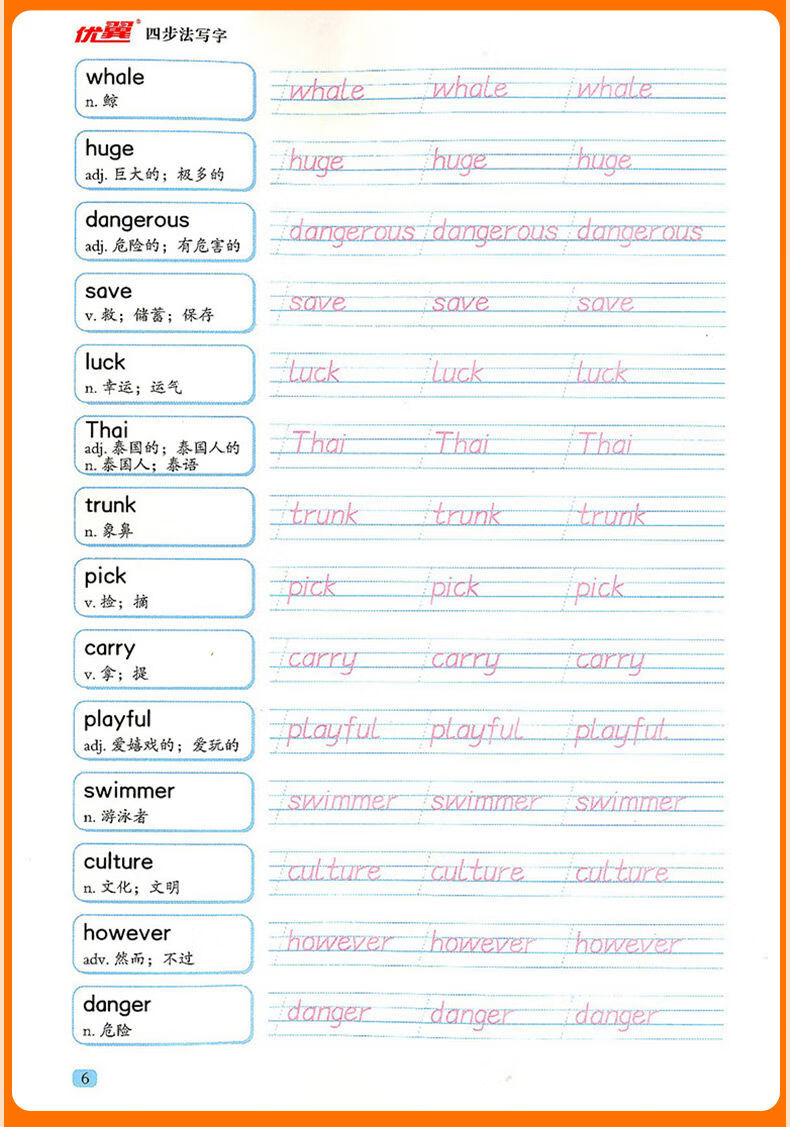 优翼® 四步法写字
whale
n. 鲸
whale whale whale
huge
adj. 巨大的；极多的
huge huge huge
dangerous
adj. 危险的；有危害的
dangerous dangerous dangerous
save
v. 救；储蓄；保存
save save save
luck
n. 幸运；运气
luck luck luck
Thai
adj. 泰国的；泰国人的
n. 泰国人；泰语
Thai Thai Thai
trunk
n. 象鼻
trunk trunk trunk
pick
v. 捡；摘
pick pick pick
carry
v. 拿；提
carry carry carry
playful
adj. 爱嬉戏的；爱玩的
playful playful playful
swimmer
n. 游泳者
swimmer swimmer swimmer
culture
n. 文化；文明
culture culture culture
however
adv. 然而；不过
however however however
danger
n. 危险
danger danger danger
6